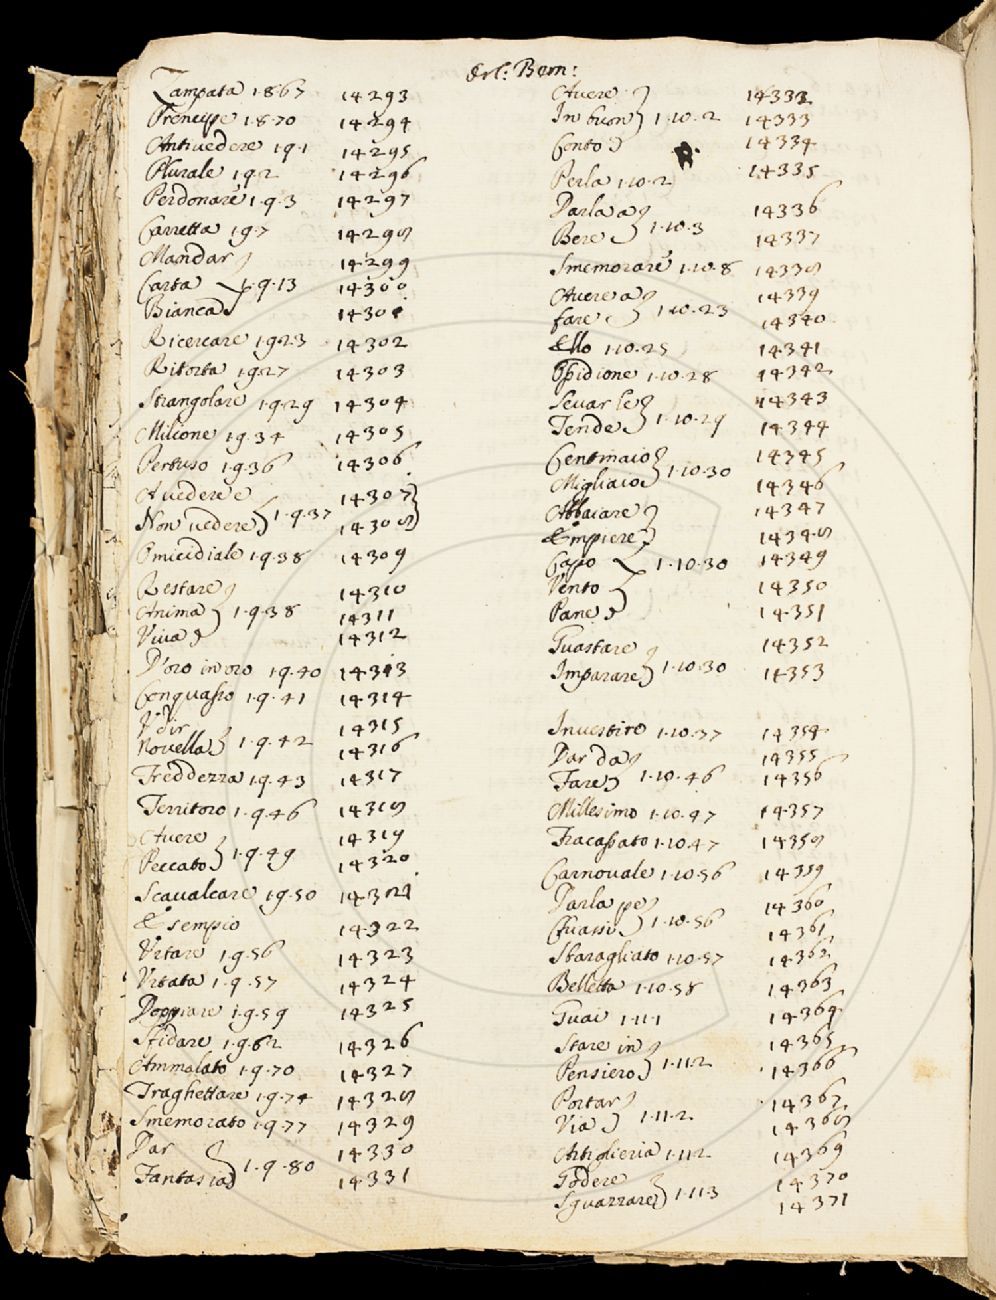 Orl: Bern:
Zampata 1·8·67 14293
Prencipe 1·8·70 14294
Antivedere 1·9·1 14295
Plurale 1·9·2 14296
Perdonare 1·9·3 14297
Carretta 1·9·7 14298
Mandar 14299
Carta 1·9·13 14300
Bianca 14301
Ricercare 1·9·23 14302
Ritorta 1·9·27 14303
Strangolare 1·9·29 14304
Milione 1·9·34 14305
Pertuso 1·9·36 14306
Avedere e 14307
Non vedere 1·9·37 14308
Omicidiale 1·9·38 14309
Restare 14310
Anima 1·9·38 14311
Viva 14312
D'oro in oro 1·9·40 14313
Conquasso 1·9·41 14314
Vdir 14315
Novella 1·9·42 14316
Freddezza 1·9·43 14317
Territoro 1·9·46 14318
Avere 14319
Peccato 1·9·49 14320
Scavalcare 1·9·50 14321
Esempio 14322
Vrtare 1·9·56 14323
Vrtata 1·9·57 14324
Doppiare 1·9·59 14325
Sfidare 1·9·62 14326
Ammalato 1·9·70 14327
Traghettare 1·9·74 14328
Smemorato 1·9·77 14329
Dar 14330
Fantasia 1·9·80 14331
Avere 14332
In buon 1·10·2 14333
Conto 14334
Perla 1·10·2 14335
Darla a 14336
Bere 1·10·3 14337
Smemorare 1·10·8 14338
Avere a 14339
fare 1·10·23 14340
Ello 1·10·25 14341
Ossidione 1·10·28 14342
Levar le 14343
Tende 1·10·29 14344
Centinaio 14345
Migliaio 1·10·30 14346
Abbaiare 14347
Empiere 14348
Capo 1·10·30 14349
Vento 14350
Pane 14351
Guastare 14352
Imparare 1·10·30 14353
Investire 1·10·37 14354
Dar da 14355
Fare 1·10·46 14356
Millesimo 1·10·47 14357
Fracassato 1·10·47 14358
Carnovale 1·10·56 14359
Darla pe 14360
Chiassi 1·10·56 14361
Sbaragliato 1·10·57 14362
Belletta 1·10·58 14363
Guai 1·11·1 14364
Stare in 14365
Pensiero 1·11·2 14366
Portar 14367
Via 1·11·2 14368
Artiglieria 1·11·2 14369
Godere 14370
Sguazzare 1·11·3 14371